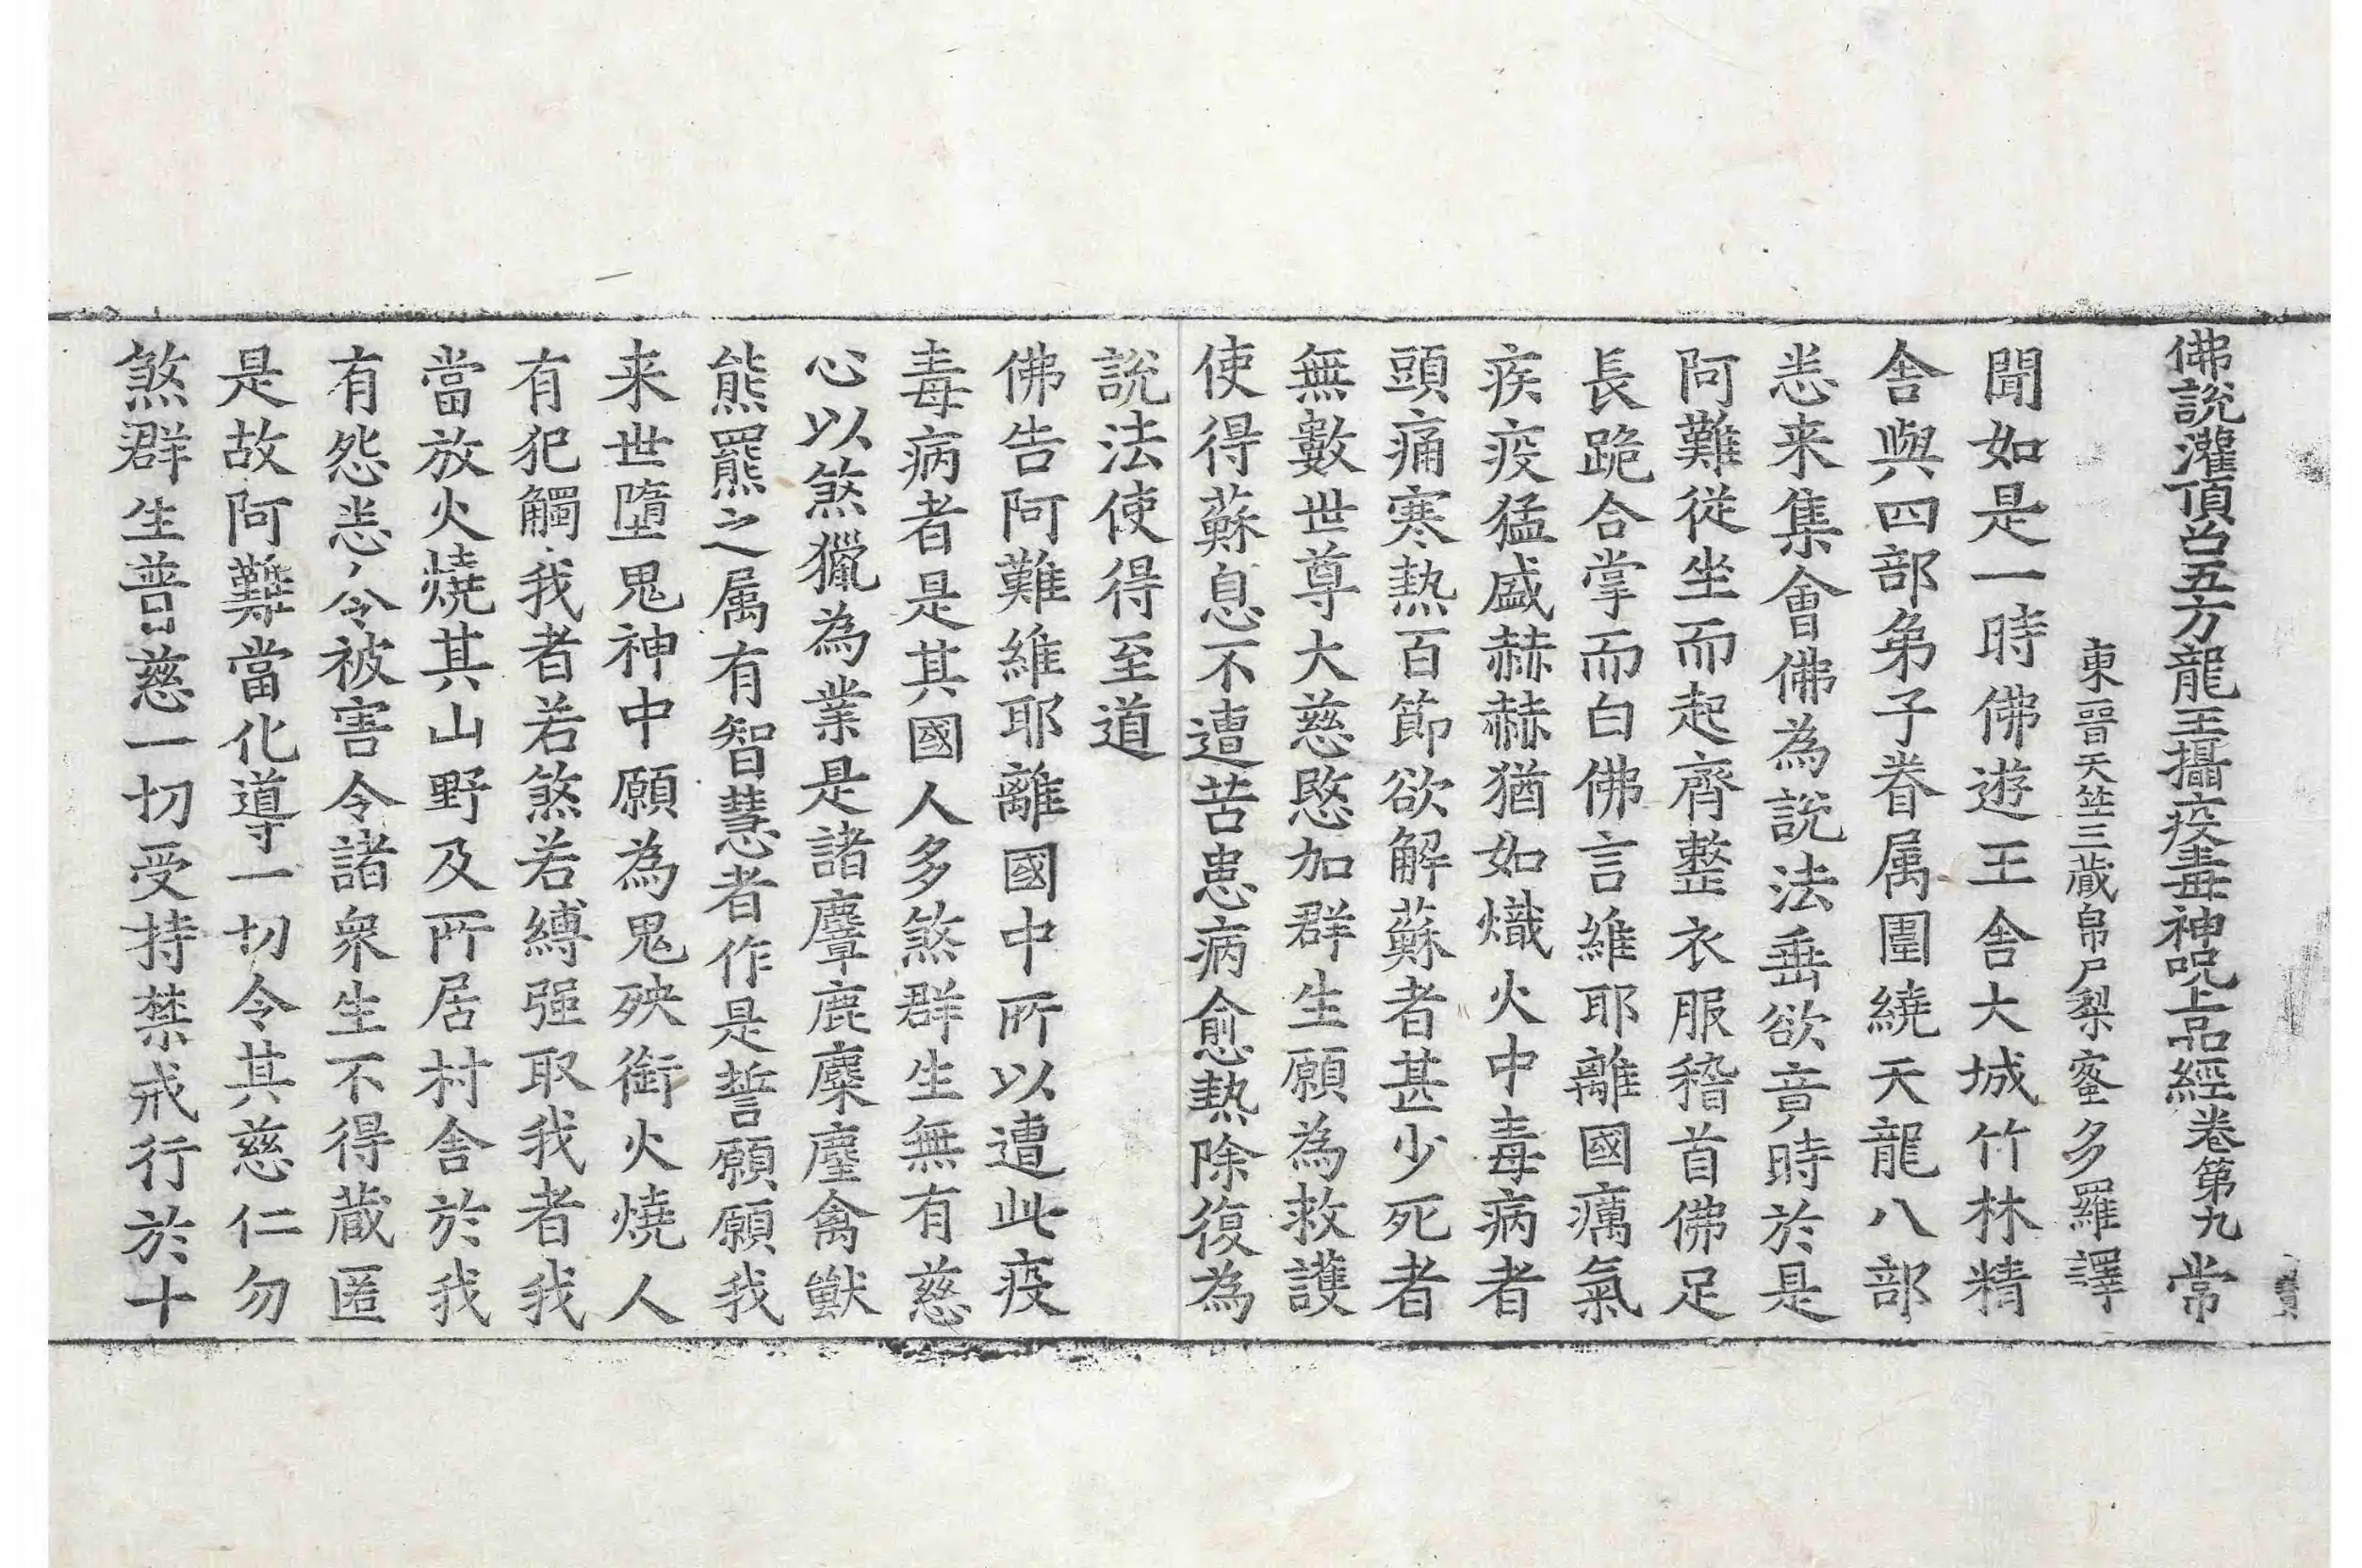 佛說灌頂召五方龍王攝疫毒神呪上品經卷第九 常
東晉天竺三藏帛尸梨蜜多羅譯
聞如是一時佛遊王舍大城竹林精
舍與四部弟子眷属圍繞天龍八部
悉来集會佛為說法垂欲竟時於是
阿難從坐而起齊整衣服稽首佛足
長跪合掌而白佛言維耶離國癘氣
疾疫猛盛赫赫猶如熾火中毒病者
頭痛寒熱百節欲解蘇者甚少死者
無數世尊大慈愍加群生願為救護
使得蘇息不遭苦患病愈熱除復為
說法使得至道
佛告阿難維耶離國中所以遭此疫
毒病者是其國人多煞群生無有慈
心以煞獵為業是諸麞鹿麋麈禽獸
熊羆之属有智慧者作是誓願願我
来世墮鬼神中願為鬼殃銜火燒人
有犯觸我者若煞若縛强取我者我
當放火燒其山野及所居村舍於我
有怨悉令被害令諸衆生不得藏匿
是故阿難當化導一切令其慈仁勿
煞群生普慈一切受持禁戒行於十